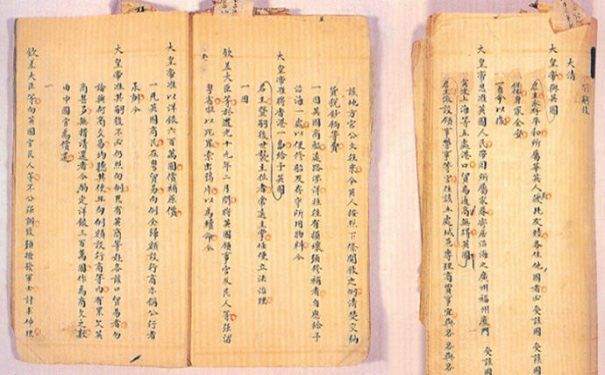 嗣後
大清
大皇帝與英國
君主永存平和所屬華英人民彼此友睦各住他國者必受該國
保佑身家全安
一自今以後
大皇帝恩准英國人民帶同所屬家眷寄居沿海之廣州福州廈門
寧波上海等五處港口貿易通商無礙英國
君主派設領事管事等官住該五處城邑專理商賈事宜與各
該地方官公文往來令英人按照下條開敘之例清楚交納
貨稅鈔餉等費
一因英國商船遠路涉洋往往有損壞須修補者自應給予
沿海一處以便修船及存守所用物料今
大皇帝准將香港一島給予英國
君主暨嗣後世襲主位者常遠主掌任便立法治理
一因
欽差大臣等於道光十九年二月間將英國領事官及民人等強留
粵省嚇以死罪索出鴉片以為贖命今
大皇帝准以洋銀六百萬圓償補原價
一凡英國商民在粵貿易向例全歸額設行商亦稱公行者
承辦今
大皇帝准其嗣後不必仍照向例凡有英商等赴各該口貿易者勿
論與何商交易均聽其便且向例額設行商等內有累欠英
商甚多無措清還者今酌定洋銀三百萬圓作為商欠之數
由中國官為償還
一
欽差大臣等向英國官民人等不公強辦致須撥發軍士討求伸理